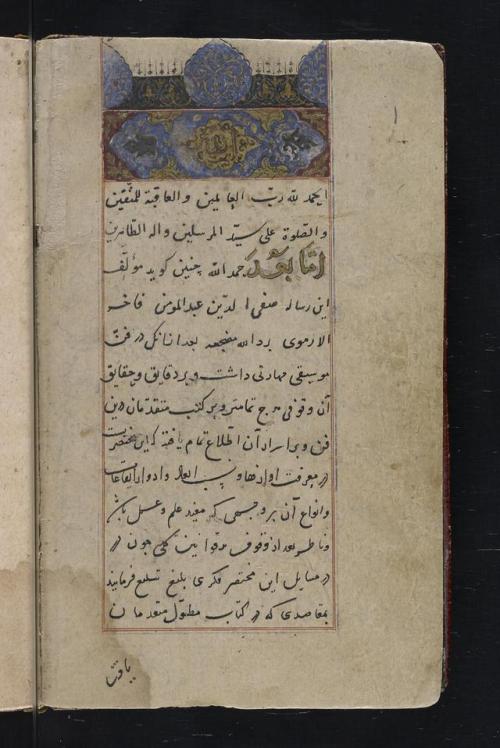 الحمد لله رب العالمین والعاقبة للمتقین
والصلوة علی سید المرسلین واله الطاهرین
اما بعد حمد الله چنین کوید مؤلف
این رساله صفی الدین عبدالمومن فاخر
الارموی برد الله مضجعه بعد انانک در فن
موسیقی مهارتی داشت و بر دقایق و حقایق
آن وقوفی هرچ تمامتر و بر کتب متقدمان درین
فن و بر اسرار آن اطلاع تمام یافته که این مختصریست
در معرفت اوازها و نسب ابعاد و ادوار ایقاعات
وانواع آن بر وجهی که مفید علم و عمل باشد
وناظر بعد از وقوف بر قوانین کلی چون در
مسایل این مختصر فکری بلیغ تتبع فرمایند
بمقاصدی که در کتاب مطول متقدمان
یافت